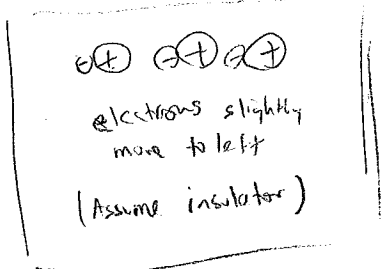 ⊖⊕ ⊖⊕ ⊖⊕
electrons slightly
more to left
(Assume insulator)